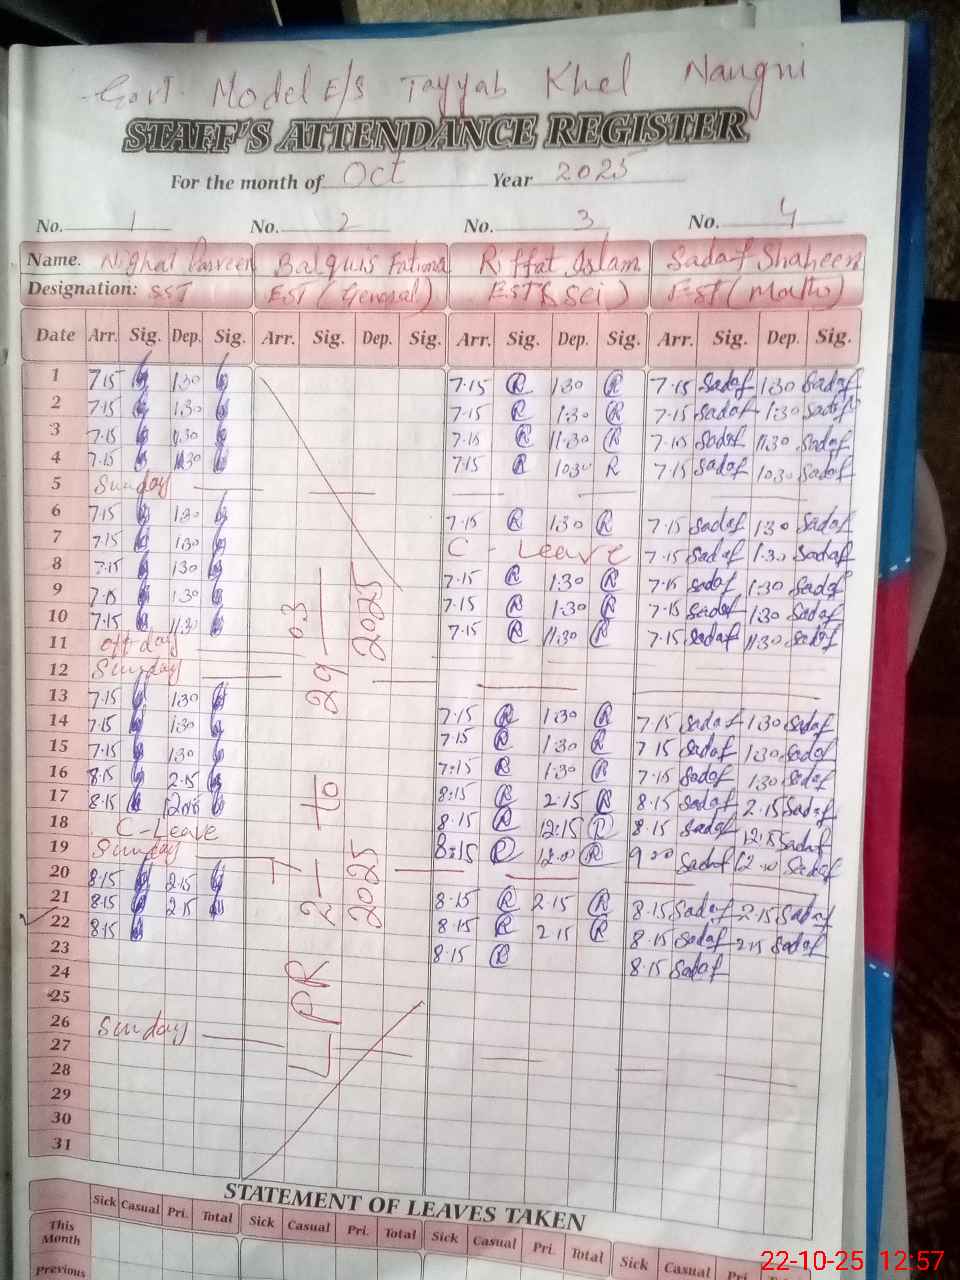 Govt. Model E/S Tayyab Khel Nangri
STAFF'S ATTENDANCE REGISTER
For the month of Oct Year 2025
No. 1 No. 2 No. 3 No. 4
Name. Nighat Parveen Balquis Fatima Riffat Islam Sadaf Shaheen
Designation: SST EST (General) EST (Sci) EST (Math)
Date Arr. Sig. Dep. Sig. Arr. Sig. Dep. Sig. Arr. Sig. Dep. Sig. Arr. Sig. Dep. Sig.
1 7.15 1.30 7.15 R 1.30 R 7.15 Sadaf 1.30 Sadaf
2 7.15 1.30 7.15 R 1.30 R 7.15 Sadaf 1.30 Sadaf
3 7.15 11.30 7.15 R 11.30 R 7.15 Sadaf 11.30 Sadaf
4 7.15 7.15 R 10.30 R 7.15 Sadaf 10.30 Sadaf
5 Sunday
6 7.15 1.30 7.15 R 1.30 R 7.15 Sadaf 1.30 Sadaf
7 7.15 1.30 C - Leave 7.15 Sadaf 1.30 Sadaf
8 7.15 1.30 7.15 R 1.30 R 7.15 Sadaf 1.30 Sadaf
9 7.15 1.30 7.15 R 1.30 R 7.15 Sadaf 1.30 Sadaf
10 7.15 11.30 7.15 R 11.30 R 7.15 Sadaf 11.30 Sadaf
11 off day
12 Sunday
13 7.15 1.30 7.15 R 1.30 R 7.15 Sadaf 1.30 Sadaf
14 7.15 1.30 7.15 R 1.30 R 7.15 Sadaf 1.30 Sadaf
15 7.15 1.30 7:15 R 1.30 R 7.15 Sadaf 1.30 Sadaf
16 8.15 2.15 8:15 R 2.15 R 8.15 Sadaf 2.15 Sadaf
17 8.15 8.15 R 12:15 R 8.15 Sadaf 12.15 Sadaf
18 C-Leave 8:15 R 12.00 R 9.00 Sadaf 12.00 Sadaf
19 Sunday
20 8.15 2.15 8.15 R 2.15 R 8.15 Sadaf 2.15 Sadaf
21 8.15 2.15 8.15 R 2.15 R 8.15 Sadaf 2.15 Sadaf
22 8.15 8.15 R 8.15 Sadaf
23
24
25
26 Sunday
27
28
29
30
31
LPR 2-7-2025 to 29-03-2025
STATEMENT OF LEAVES TAKEN
Sick Casual Pri. Total Sick Casual Pri. Total Sick Casual Pri. Total Sick Casual Pri.
This Month
Previous
22-10-25 12:57